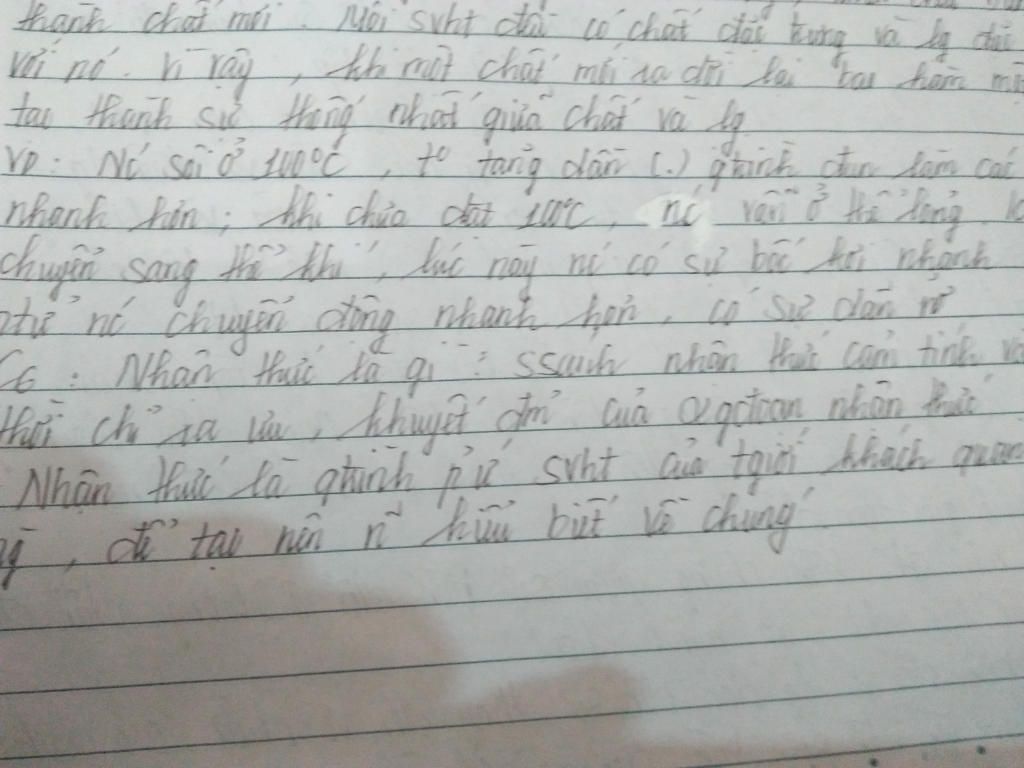 thành chất mới. Mỗi svht đều có chất đặc trưng và lg đặc
với nó. Vì vậy, khi một chất mới ra đời lại bao hàm một
tạo thành sự thống nhất giữa chất và lg
VD: Nc sôi ở 100°C, t° tăng dần (.) qtrình đun làm các
nhanh hơn; khi chưa đạt 100°C, nc vẫn ở thể lỏng k
chuyển sang thể khí, lúc này nc có sự bốc hơi nhanh
ptử nc chuyển động nhanh hơn, có sự dãn nở
C6: Nhận thức là gì? Ssánh nhận thức cảm tính và
thời chỉ ra ưu, khuyết đm của 2 gđoạn nhận thức
Nhận thức là qtrình p/ứ svht của tgiới khách quan
ng, để tạo nên n~ hiểu biết về chúng